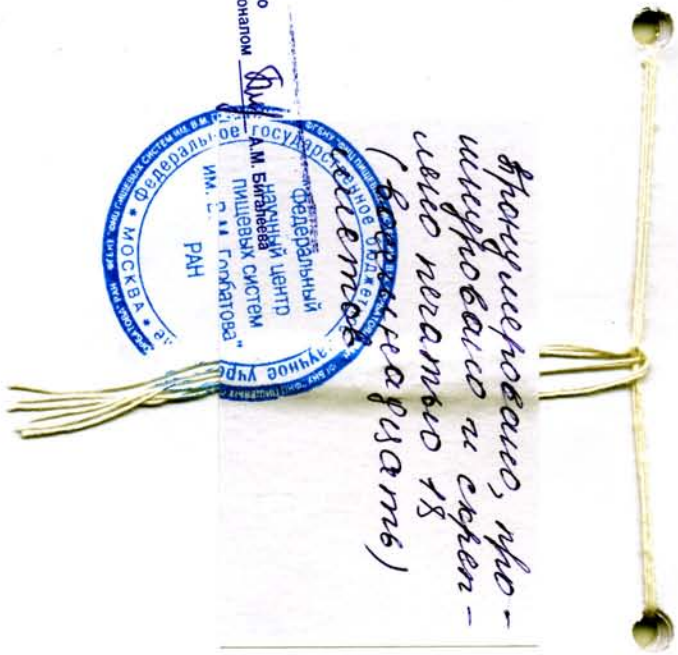 Пронумеровано, про-
шнуровано и скреп-
лено печатью 18
(восемнадцать)
листов
оналом А.М. Бигалеева
Федеральное государственное бюджет
научное учре
МОСКВА
Федеральный
научный центр
пищевых систем
им. В.М. Горбатова"
РАН